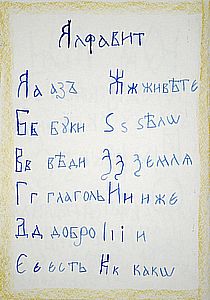 Алфавит
Аа азъ Жж живѣте
Бв буки Ѕѕ ѕѣлѡ
Вв вѣди Ꙁꙁ ꙁемля
Гг глаголь Ии иже
Дд добро Іі і и
Єє есть Кк какѡ